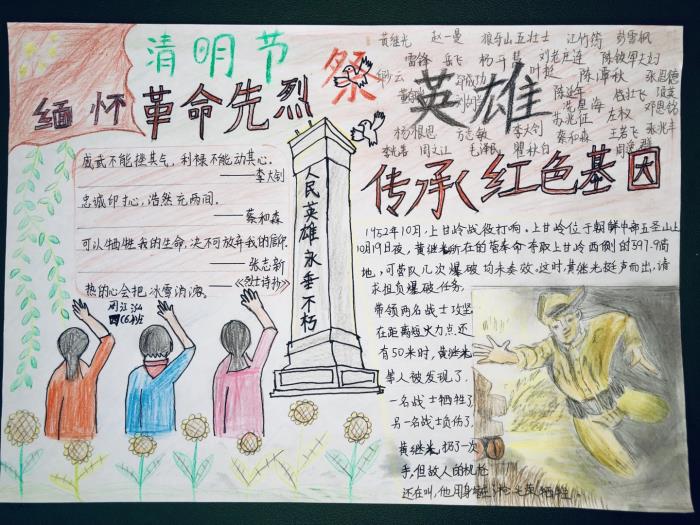 清明节 祭 英雄
缅怀革命先烈
传承红色基因
黄继光 赵一曼 狼牙山五壮士 江竹筠 彭雪枫
雷锋 岳飞 杨 刘老庄连 陈毅
邱少云 成功 叶挺 陈潭秋 张思德
陈延年 项英
冼星海 邓恩铭
苏兆征 左权
杨根思 方志敏 李大钊 秦和森 王若飞 张兆丰
李先 周文 毛泽民 瞿秋白
威武不能挫其气，利禄不能动其心。
——李大钊
忠诚印寸心，浩然充两间。
——蔡和森
可以牺牲我的生命，决不可放弃我的信仰
——张志新
热的心会把冰雪消溶。——《烈士诗抄》
人民英雄永垂不朽
1952年10月，上甘岭战役打响。上甘岭位于朝鲜中部五圣山上
10月19日夜，黄继光所在的营奉命夺取上甘岭西侧的597.9高
地，可营队几次爆破均未奏效。这时，黄继光挺身而出，请
求担负爆破任务。
带领两名战士攻坚
在距离敌火力点还
有50米时，黄继光
等人被发现了，
一名战士牺牲了
另一名战士负伤了
黄继光扔了一次
手，但敌人的机枪
还在叫，他用身